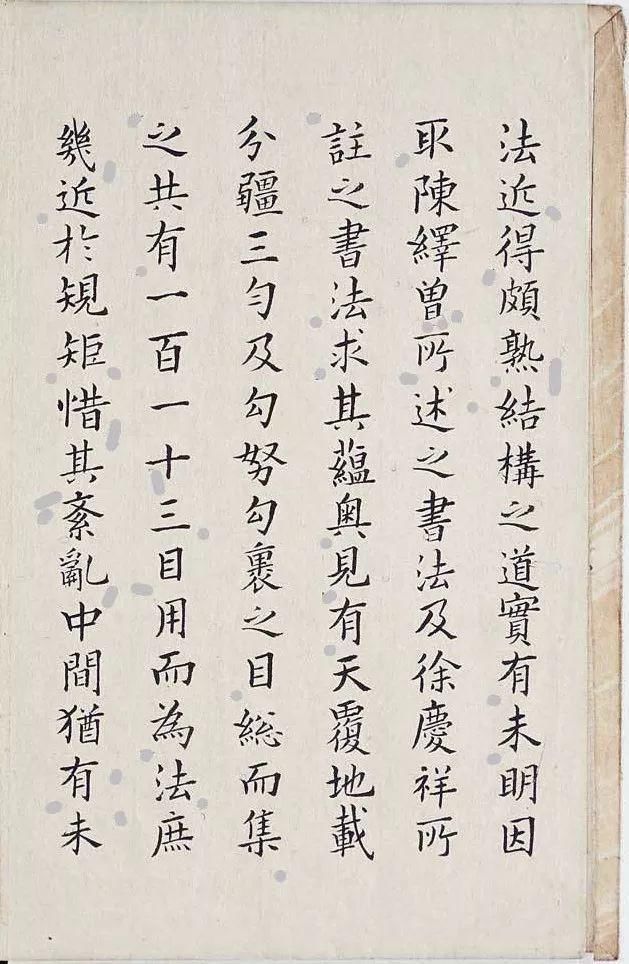 法近得頗熟結構之道實有未明因
取陳繹曽所述之書法及徐慶祥所
註之書法求其蘊奥見有天覆地載
分疆三勻及勾努勾裹之目総而集
之共有一百一十三目用而為法庶
幾近於規矩惜其紊亂中間猶有未